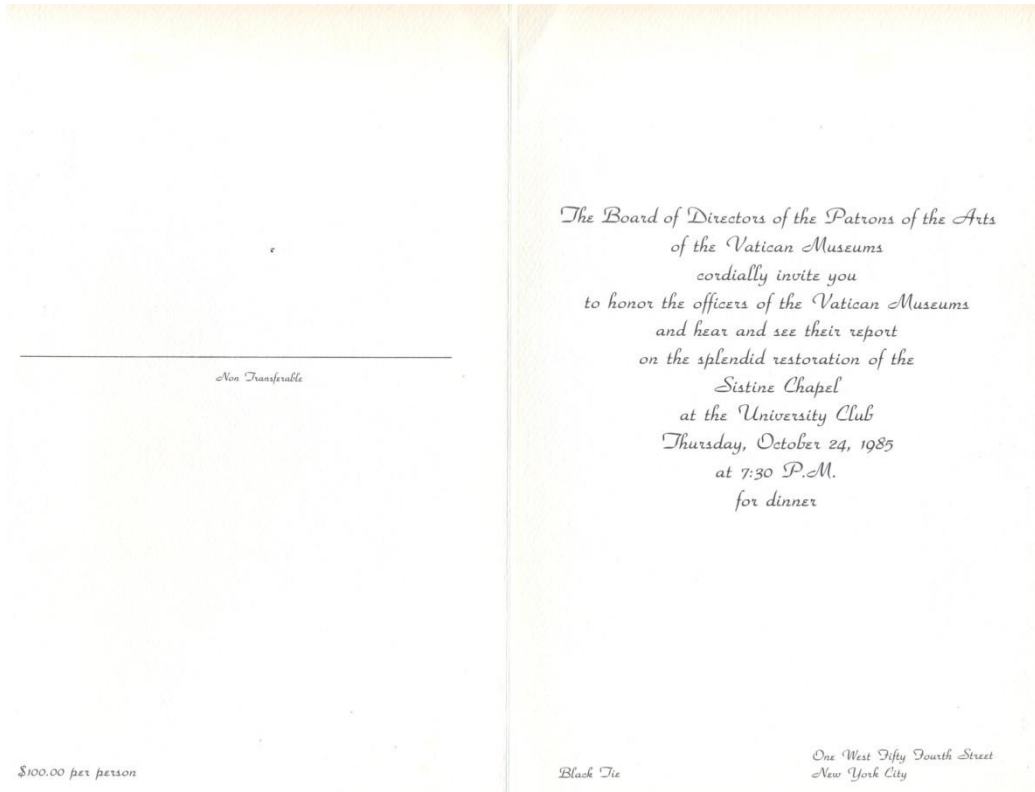 Non Transferable
$100.00 per person
The Board of Directors of the Patrons of the Arts
of the Vatican Museums
cordially invite you
to honor the officers of the Vatican Museums
and hear and see their report
on the splendid restoration of the
Sistine Chapel
at the University Club
Thursday, October 24, 1985
at 7:30 P.M.
for dinner
Black Tie
One West Fifty Fourth Street
New York City